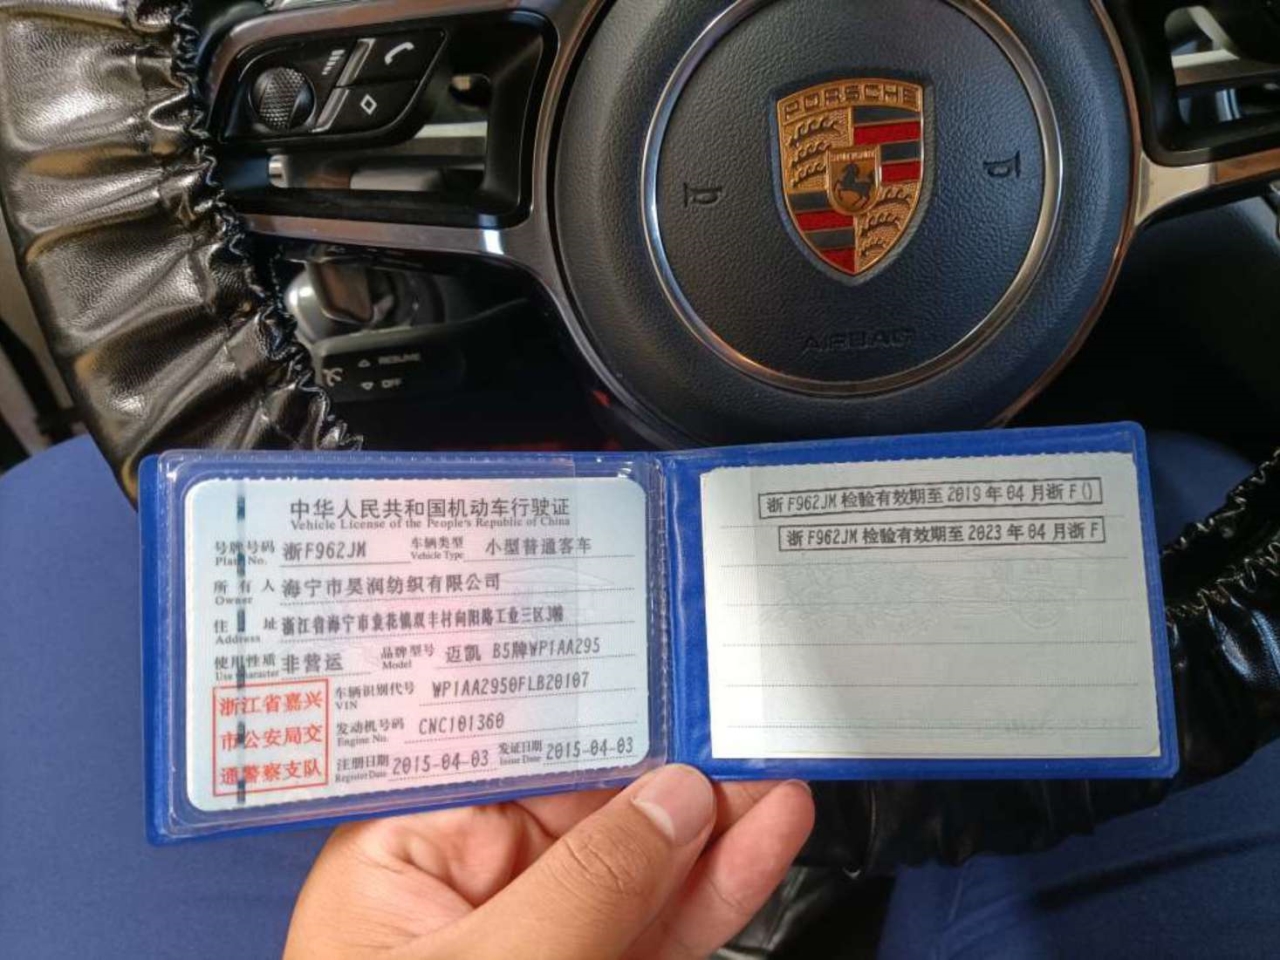 PORSCHE
AIRBAG
RESUME
OFF
中华人民共和国机动车行驶证
Vehicle License of the People's Republic of China
号牌号码 浙F962JM 车辆类型 小型普通客车
Plate No. Vehicle Type
所有人 海宁市昊润纺织有限公司
Owner
住址 浙江省海宁市黄花镇双丰村向阳路工业三区3幢
Address
使用性质 非营运 品牌型号 迈凯 B5牌WP1AA295
Use Character Model
浙江省嘉兴
市公安局交
通警察支队
车辆识别代号 WP1AA2950FLB20107
VIN
发动机号码 CNC101360
Engine No.
注册日期 2015-04-03 发证日期 2015-04-03
Register Date Issue Date
浙F962JM 检验有效期至2019年04月浙F()
浙F962JM 检验有效期至2023年04月浙F